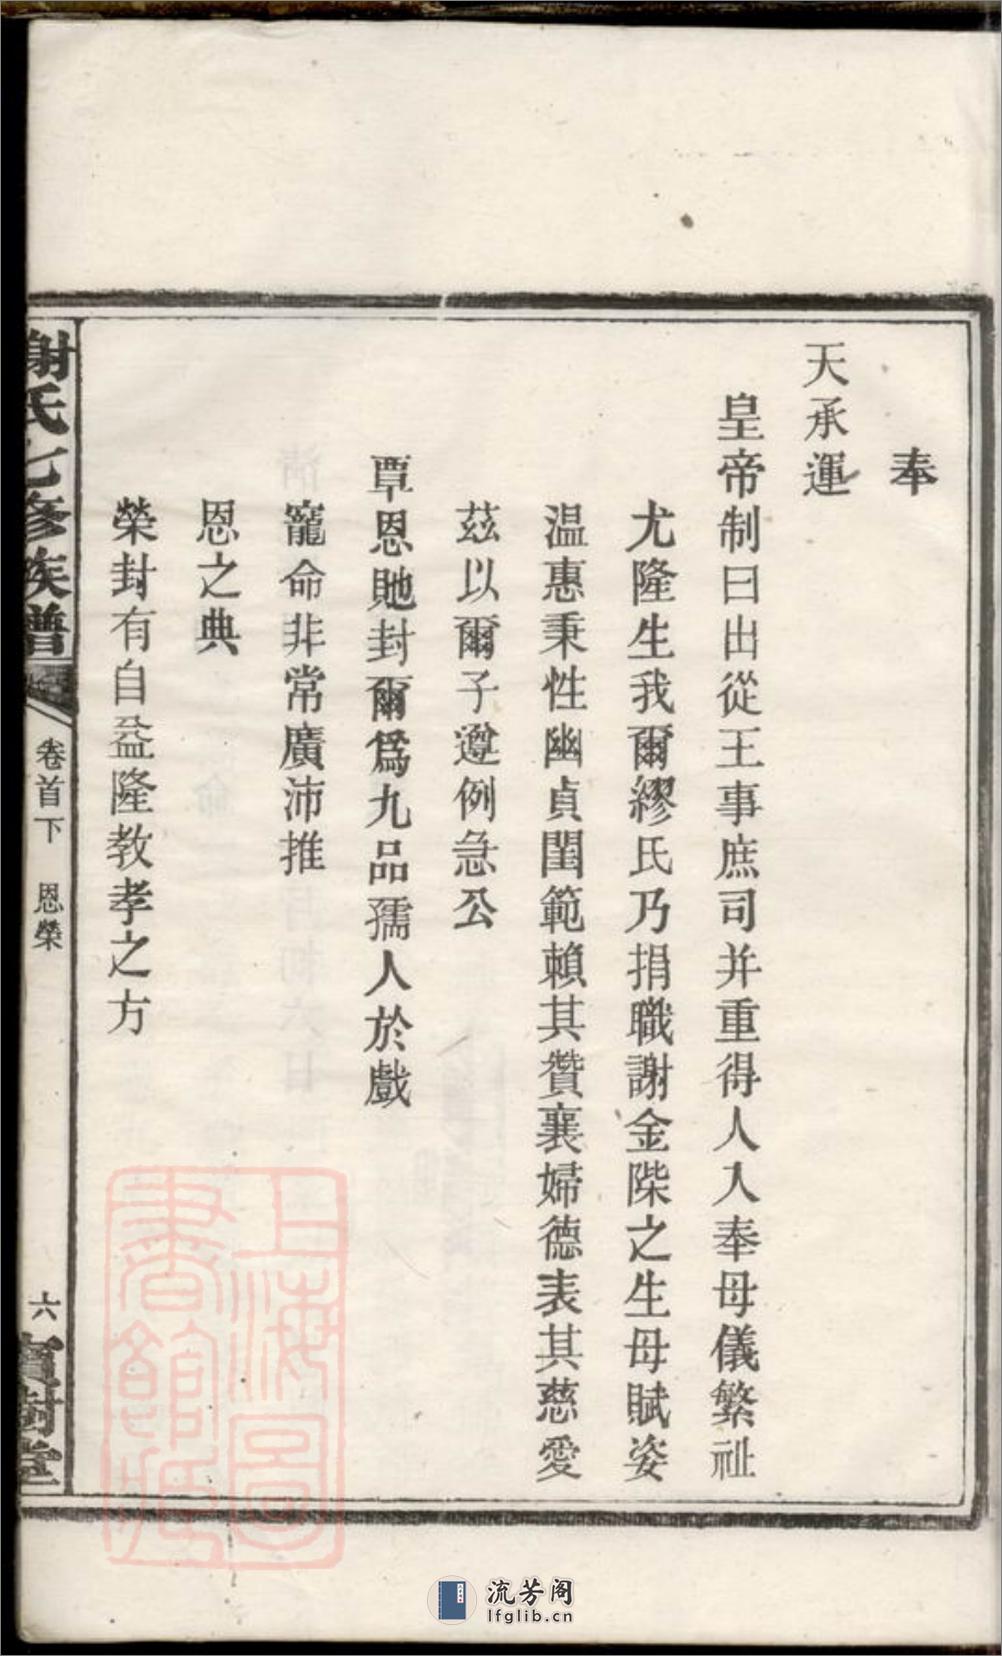 奉
天承運
皇帝制曰出從王事庶司并重得人入奉母儀繁祉
尤隆生我爾繆氏乃捐職謝金陛之生母賦姿
温惠秉性幽貞閨範賴其贊襄婦德表其慈愛
茲以爾子遵例急公
覃恩貤封爾爲九品孺人於戲
寵命非常廣沛推
恩之典
榮封有自益隆教孝之方
謝氏七修族譜
卷首下 恩榮
六
寶樹堂
上海圖
書館藏
流芳阁
lfglib.cn